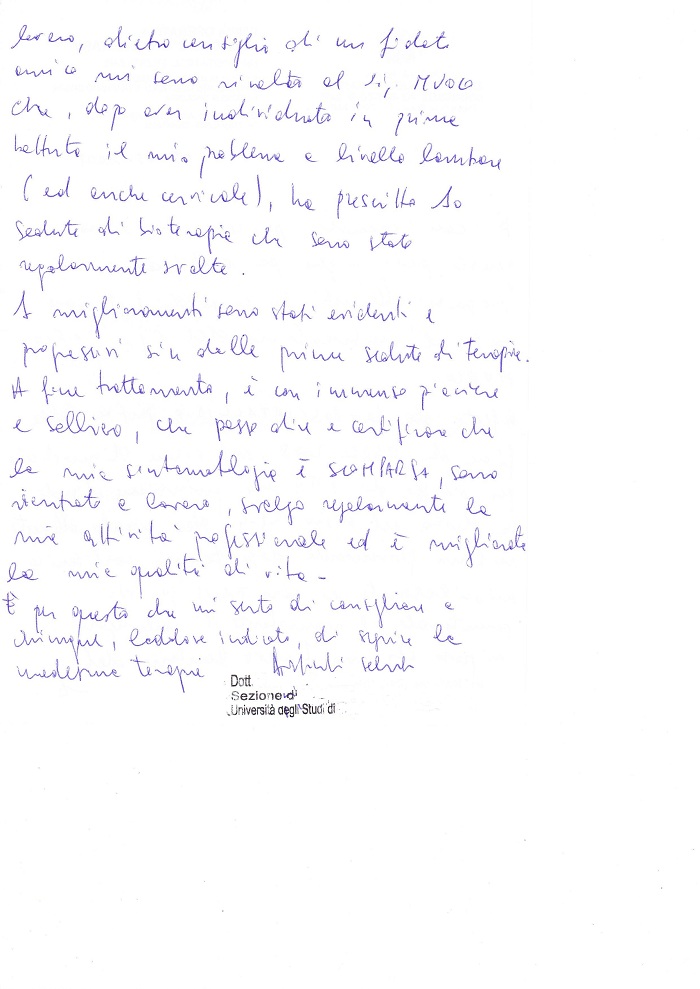 lavoro, dietro consiglio di un fidato
amico mi sono rivolto al sig. MUOLO
che, dopo aver individuato in prima
battuta il mio problema a livello lombare
(ed anche cervicale), ha prescritto 10
sedute di bioterapia che sono state
regolarmente svolte.
I miglioramenti sono stati evidenti e
progressivi sin dalle prime sedute di terapia.
A fine trattamento, è con immenso piacere
e sollievo, che posso dire e certificare che
la mia sintomatologia è SCOMPARSA, sono
rientrato a lavoro, svolgo regolarmente la
mia attività professionale ed è migliorata
la mia qualità di vita -
È per questo che mi sento di consigliare a
chiunque, laddove indicato, di seguire la
medesima terapia
Dott.
Sezione di
Università degli Studi di